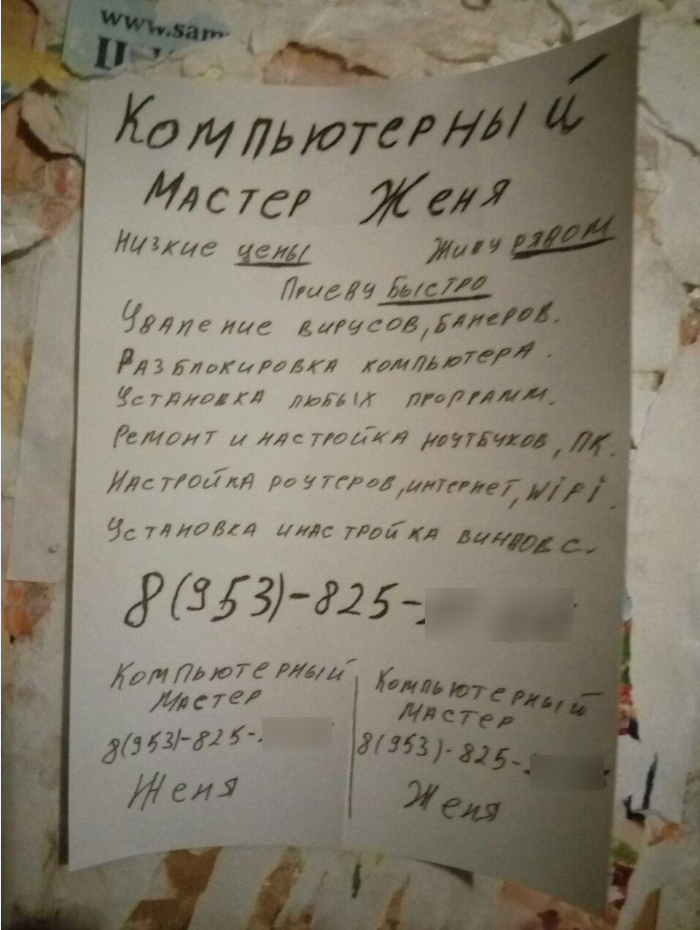 www.sam
Компьютерный
Мастер Женя
Низкие цены Живу рядом
Приеву быстро
Увапение вирусов, банеров.
Разблокировка компьютера.
Установка любых программ.
Ремонт и настройка ноутбуков, ПК.
Настройка роутеров, интернет, WiFi.
Установка инастройка виндовс.
8(953)-825-
Компьютерный
Мастер
8(953)-825-
Женя
Компьютерный
Мастер
8(953)-825-
Женя